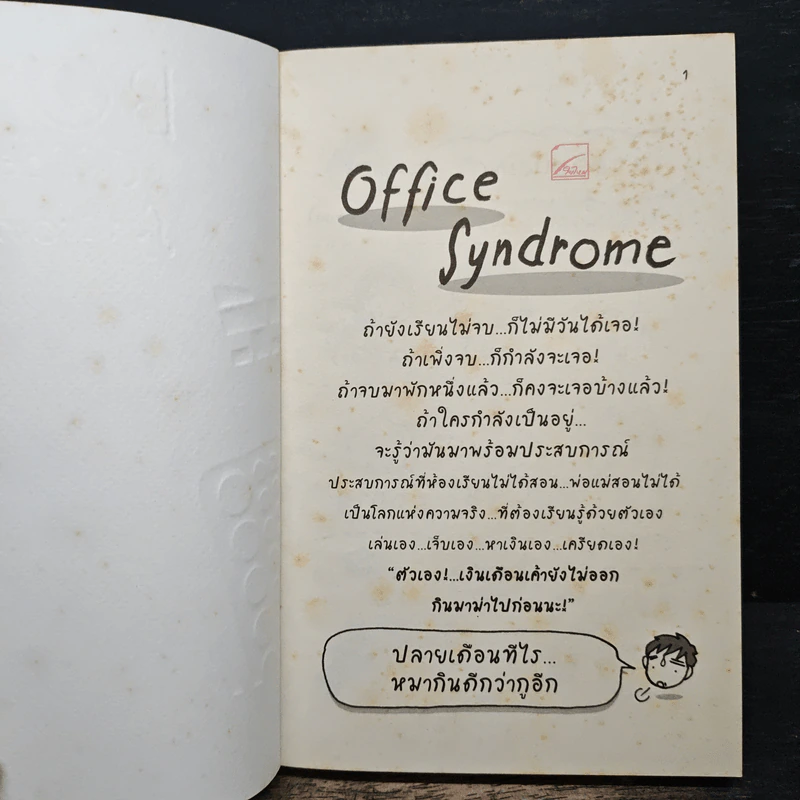 1
Office
Syndrome
ถ้ายังเรียนไม่จบ...ก็ไม่มีวันได้เจอ!
ถ้าเพิ่งจบ...ก็กำลังจะเจอ!
ถ้าจบมาพักหนึ่งแล้ว...ก็คงจะเจอบ้างแล้ว!
ถ้าใครกำลังเป็นอยู่...
จะรู้ว่ามันมาพร้อมประสบการณ์
ประสบการณ์ที่ห้องเรียนไม่ได้สอน...พ่อแม่สอนไม่ได้
เป็นโลกแห่งความจริง...ที่ต้องเรียนรู้ด้วยตัวเอง
เล่นเอง...เจ็บเอง...หาเงินเอง...เครียดเอง!
“ตัวเอง!...เงินเดือนเค้ายังไม่ออก
กินมาม่าไปก่อนนะ!”
ปลายเดือนทีไร...
หมากินดีกว่ากูอีก